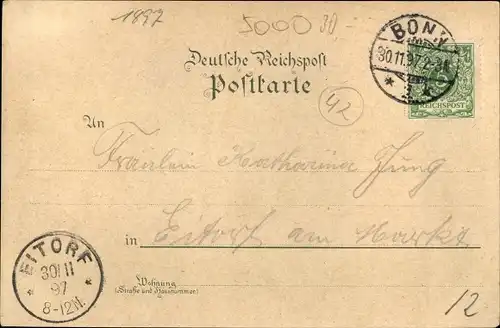 1897
5000 30
BONN
30.11.97.2-3N.
* 1 *
REICHSPOST
Deutsche Reichspost
Postkarte
42
An
Fräulein Katharina Jung
in Eitorf am Markt
EITORF
30/11
97
8-12N.
Wohnung
(Straße und Hausnummer)
12